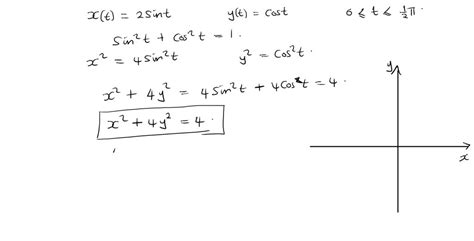 x(t) = 2Sint    y(t) = Cost    0 ≤ t ≤ ½π.
Sin²t + Cos²t = 1.
x² = 4Sin²t    y² = Cos²t.
x² + 4y² = 4Sin²t + 4Cos²t = 4.
x² + 4y² = 4.
y
x